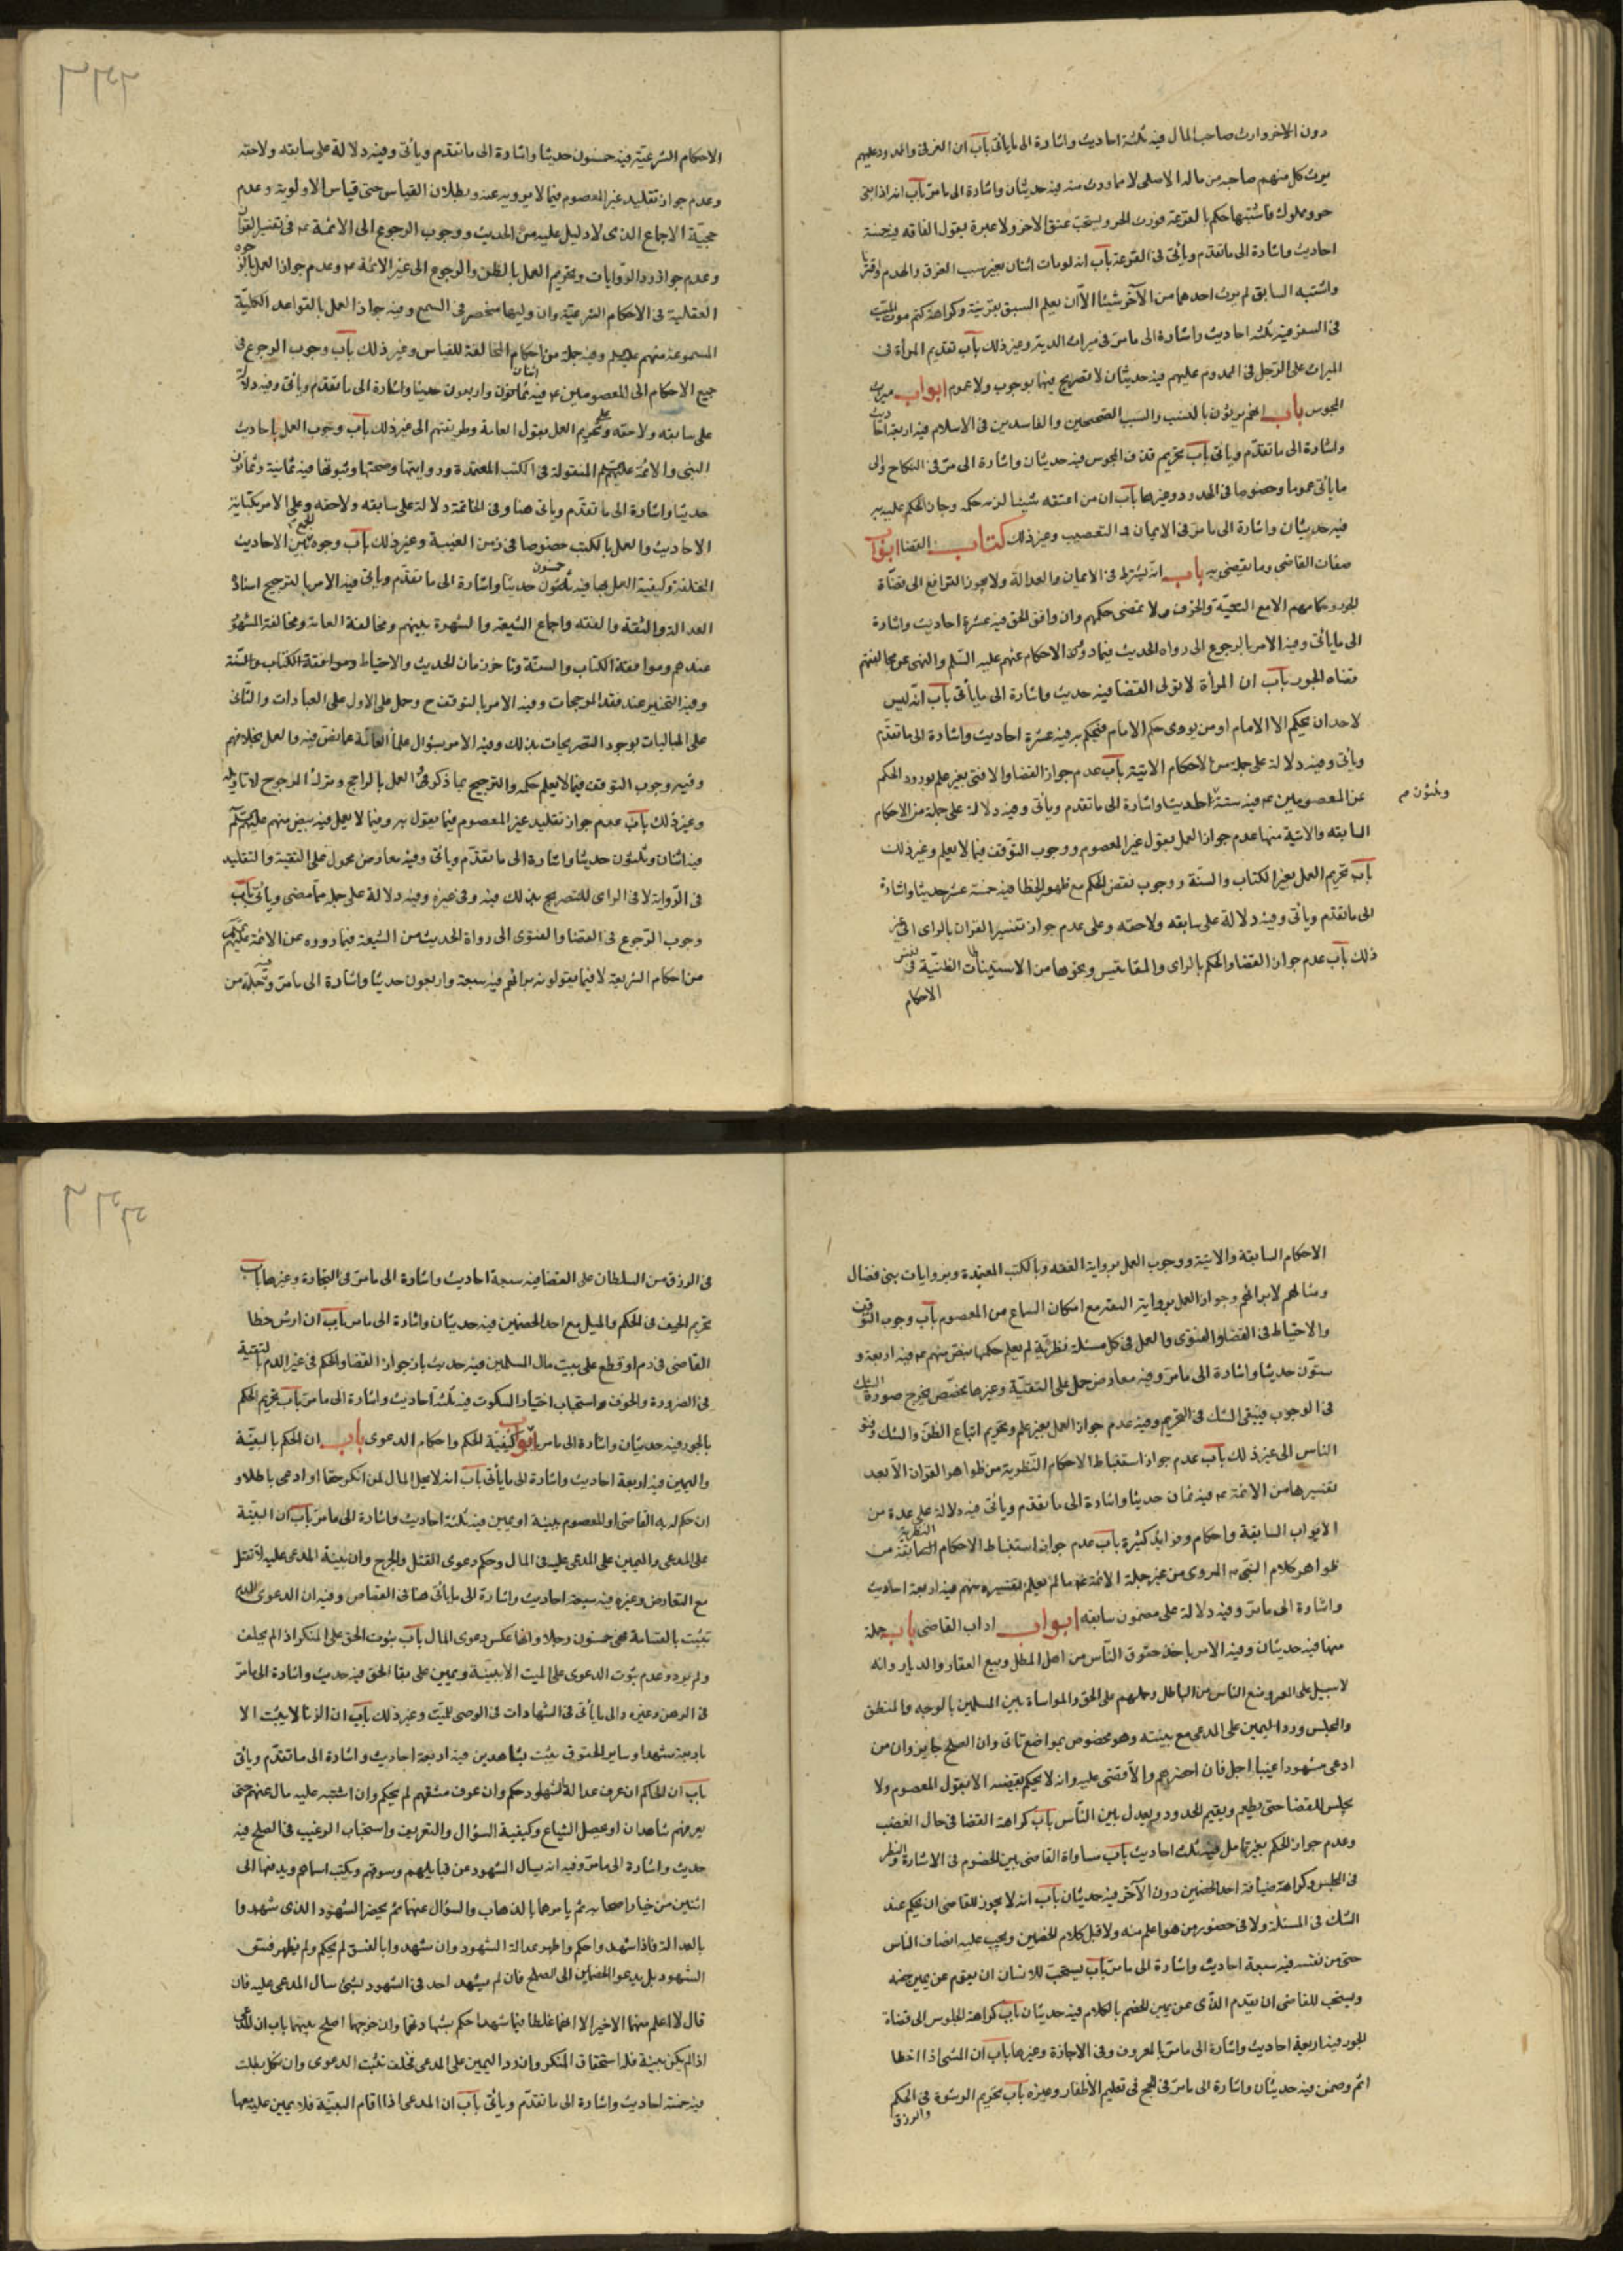 دون الاخر وارث صاحب المال فيه ثلثة احاديث واشارة الى ما ياتى باب ان الغرقى والمهدوم عليهم
يرث كل منهم صاحبه من ماله الاصلى لا مما ورث منه فيه حديثان واشارة الى ما مر باب انه اذا بقى
حر ومملوك فاشتبها حكم بالقرعة فورث الحر ويستحب عتق الاخر ولا عبرة بقول القافة فيه خمسة
احاديث واشارة الى ما تقدم وياتى فى القرعة باب انه لو مات اثنان بغير سبب الغرق والهدم او قترنا
واشتبه السابق لم يرث احدهما من الآخر شيئا الا ان يعلم السبق بقرينة وكراهة كتم موت الميت
فى السفر فيه ثلثة احاديث واشارة الى ما مر فى ميراث الدية وغير ذلك باب تقديم المرأة فى
الميراث على الرجل فى المهدوم عليهم فيه حديثان لا تصريح فيها بوجوب ولا عموم ابواب ميراث
المجوس باب انهم يرثون بالنسب والسبب الصحيحين والفاسدين فى الاسلام فيه اربعة احاديث
واشارة الى ما تقدم وياتى باب تحريم قذف المجوس فيه حديثان واشارة الى ما مر فى النكاح والى
ما ياتى عموما وخصوصا فى الحدود وغيرها باب ان من اعتقد شيئا لزمه حكمه وجاز الحكم عليه به
فيه حديثان واشارة الى ما مر فى الايمان والتعصيب وغير ذلك كتاب القضا ابواب
صفات القاضى وما يقضى به باب انه يشترط فى الايمان والعدالة ولا يجوز الترافع الى قضاة
الجور وحكامهم الا مع التقية والخوف ولا يمضى حكمهم وان وافق الحق فيه عشرة احاديث واشارة
الى ما ياتى وفيه الامر بالرجوع الى رواة الحديث فيما رووه من الاحكام عنهم عليهم السلم والنهى عن مجالستهم
قضاة الجور باب ان المرأة لا تولى القضا فيه حديث واشارة الى ما ياتى باب انه ليس
لاحد ان يحكم الا الامام او من يروى حكم الامام فيحكم به فيه عشرة احاديث واشارة الى ما تقدم
وياتى وفيه دلالة على جملة من الاحكام الاتية باب عدم جواز القضا والافتى بغير علم بورود الحكم
عن المعصومين ع فيه ستة وثلثون حديثا واشارة الى ما تقدم وياتى وفيه دلالة على جملة من الاحكام
السابقة والاتية منها عدم جواز العمل بقول غير المعصوم ووجوب التوقف فيما لا يعلم وغير ذلك
باب تحريم العمل بغير الكتاب والسنة ووجوب نقض الحكم مع ظهور الخطا فيه خمسة عشر حديثا واشارة
الى ما تقدم وياتى وفيه دلالة على سابقه ولاحقه وعلى عدم جواز تفسير القران بالراى الى غير
ذلك باب عدم جواز القضا والحكم بالراى والمقاييس ونحوها من الاستنباطات الظنية فى نفس
الاحكام
الاحكام الشرعية فيه خمسون حديثا واشارة الى ما تقدم وياتى وفيه دلالة على سابقه ولاحقه
وعدم جواز تقليد غير المعصوم فيما لا يرويه عنه وبطلان القياس حتى قياس الاولوية وعدم
حجية الاجماع الذى لا دليل عليه من الحديث ووجوب الرجوع الى الائمة ع فى تفسير القرآن
وعدم جواز رد الروايات وتحريم العمل بالظن والرجوع الى غير الائمة ع وعدم جواز العمل بالوجوه
العقلية فى الاحكام الشرعية وان دليلها منحصر فى السمع وفيه جواز العمل بالقواعد الكلية
المسموعة منهم عليهم وفيه جملة من احكام المخالفة للقياس وغير ذلك باب وجوب الرجوع فى
جميع الاحكام الى المعصومين ع فيه اثنان واربعون حديثا واشارة الى ما تقدم وياتى وفيه دلالة
على سابقه ولاحقه وعلى تحريم العمل بقول العامة وطريقتهم الى غير ذلك باب وجوب العمل باحاديث
النبى والائمة عليهم المنقولة فى الكتب المعتمدة وروايتها وصحتها وثبوتها فيه ثمانية وثمانون
حديثا واشارة الى ما تقدم وياتى هنا وفى الخاتمة دلالة على سابقه ولاحقه وعلى الامر بكتابة
الاحاديث والعمل بالكتب خصوصا فى زمن الغيبة وغير ذلك باب وجوه الجمع بين الاحاديث
المختلفة وكيفية العمل بها فيه خمسون حديثا واشارة الى ما تقدم وياتى فيه الامر بالترجيح اسنادا
العدالة والثقة والفقه واجماع الشيعة والشهرة بينهم ومخالفة العامة ومخالفة المشهور
عندهم وموافقة الكتاب والسنة وتاخر زمان الحديث والاحتياط وموافقة الكتاب والسنة
وفيه التخيير عند فقد المرجحات وفيه الامر بالتوقف ح وحمل على الاول على العبادات والثانى
على الماليات لوجود التصريحات بذلك وفيه الامر بسؤال علما العامة عما يخفى فيه والعمل بخلافهم
وفيه وجوب التوقف فيما لا يعلم حكمه والترجيح بما ذكر وفى العمل بالراجح وترك المرجوح لا تاويله
وغير ذلك باب عدم جواز تقليد غير المعصوم فيما يقول به وفيما لا يعمل فيه بنص منهم عليهم السلم
فيه اثنان وثلثون حديثا واشارة الى ما تقدم وياتى وفيه معارض محمول على التقية والتقليد
فى الرواية لا فى الراى للتصريح بذلك فيه وفى غيره وفيه دلالة على جملة مما مضى وياتى باب
وجوب الرجوع فى القضا والفتوى الى رواة الحديث من الشيعة فيما رووه عن الائمة عليهم
من احكام الشريعة لا فيما يقولونه برايهم فيه سبعة واربعون حديثا واشارة الى ما مر وفيه جملة من
الاحكام السابقة والاتية ووجوب العمل برواية الثقة وبالكتب المعتمدة وبروايات بنى فضال
ومثالهم لا برايهم وجواز العمل برواية الثقة مع امكان السماع من المعصوم باب وجوب التوقف
والاحتياط فى القضا والفتوى والعمل فى كل مسئلة نظرية لم يعلم حكمها بنص منهم ع فيه اربعة و
ستون حديثا واشارة الى ما مر وفيه معارض حمل على التقية وغيرها بخصص يخرج صورة الشك
فى الوجوب فيبقى الشك فى التحريم وفيه عدم جواز العمل بغير علم وتحريم اتباع الظن والشك وفتوى
الناس الى غير ذلك باب عدم جواز استنباط الاحكام النظرية من ظواهر القران الا بعد
تفسيرها من الائمة ع فيه ثمان حديثا واشارة الى ما تقدم وياتى فيه دلالة على عدة من
الابواب السابقة واحكام وفوايد كثيرة باب عدم جواز استنباط الاحكام النظرية من
ظواهر كلام النبى ص المروى من غير جهة الائمة ع ما لم يعلم تفسيره منهم فيه اربعة احاديث
واشارة الى ما مر وفيه دلالة على مضمون سابقه ابواب اداب القاضى باب جملة
منها فيه حديثان وفيه الامر باخذ حقوق الناس من اهل المطل وبيع العقار والديار وانه
لا سبيل على المعسر ومنع الناس من الباطل وحملهم على الحق والمواساة بين المسلمين بالوجه والمنطق
والمجلس ورد اليمين على المدعى مع بينته وهو مخصوص بمواضع تاتى وان الصلح جايز وان من
ادعى شهودا غيبا اجل فان احضرهم والا قضى عليه وانه لا يحكم بقضية الا بقول المعصوم ولا
يجلس للقضا حتى يطعم ويقيم الحدود ويعدل بين الناس باب كراهة القضا فى حال الغضب
وعدم جواز الحكم بغير تامل فيه ثلث احاديث باب مساواة القاضى بين الخصوم فى الاشارة والنظر
فى المجلس وكراهة ضيافة احد الخصمين دون الآخر فيه حديثان باب انه لا يجوز للقاضى ان يحكم عند
الشك فى المسئلة ولا فى حضور من هو اعلم منه ولا قبل كلام الخصمين ويجب عليه انصاف الناس
حتى من نفسه فيه سبعة احاديث واشارة الى ما مر باب يستحب للانسان ان يقوم عن يمين خصمه
ويستحب للقاضى ان يقدم الذى عن يمين الخصم بالكلام فيه حديثان باب كراهة الجلوس الى قضاة
الجور فيه اربعة احاديث واشارة الى ما مر بالمعروف وفى الاجازة وغيرها باب ان المفتى اذا اخطا
اثم وضمن فيه حديثان واشارة الى ما مر فى الحج فى تقليم الاظفار وغيره باب تحريم الرشوة فى الحكم
والرزق
فى الرزق من السلطان على القضا فيه سبعة احاديث واشارة الى ما مر فى التجارة وغيرها باب
تحريم الحيف فى الحكم والميل مع احد الخصمين فيه حديثان واشارة الى ما مر باب ان ارش خطا
القاضى فى دم او قطع على بيت مال المسلمين فيه حديث باب جواز القضا والحكم فى غير الدم بالتقية
فى الضرورة والخوف واستحباب اختيار السكوت فيه ثلثة احاديث واشارة الى ما مر باب تحريم الحكم
بالجور فيه حديثان واشارة الى ما مر ابواب كيفية الحكم واحكام الدعوى باب ان الحكم بالبينة
واليمين فيه اربعة احاديث واشارة الى ما ياتى باب انه لا يحل المال لمن انكر حقا او ادعى باطلا و
ان حكم له به القاضى او المعصوم ببينة او يمين فيه ثلثة احاديث واشارة الى ما مر باب ان البينة
على المدعى واليمين على المدعى عليه فى المال وحكم دعوى القتل والجرح وان بينة المدعى عليه لا تقبل
مع التعارض وغيره فيه سبعة احاديث واشارة الى ما ياتى هنا فى القصاص وفيه ان الدعوى الدم
تثبت بالقسامة هى خمسون رجلا وانها عكس دعوى المال باب ثبوت الحق على المنكر اذا لم يحلف
ولم يرد وعدم ثبوت الدعوى على الميت الا ببينة ويمين على بقا الحق فيه حديث واشارة الى ما مر
فى الرهن وغيره والى ما ياتى فى الشهادات فى الوصى للميت وغير ذلك باب ان الزنا لا يثبت الا
باربعة شهدا وساير الحقوق يثبت بشاهدين فيه اربعة احاديث واشارة الى ما تقدم وياتى
باب ان الحاكم ان عرف عدالة الشهود حكم وان عرف فسقهم لم يحكم وان اشتبه عليه سال عنهم حتى
يعرفهم شاهدان او يحصل الشياع وكيفية السؤال والتعريف واستحباب الترغيب فى الصلح فيه
حديث واشارة الى ما مر وفيه انه يسال الشهود عن قبايلهم وسوقهم ويكتب اسماهم ويدفعها الى
اثنين من خيار اصحابه ثم يامرهما بالذهاب والسؤال عنهما ثم يحضر الشهود الذى شهدوا
بالعدالة فاذا شهدوا حكم واظهر عدالة الشهود وان شهدوا بالفسق لم يحكم ولم يظهر فسق
الشهود بل يدعو الخصمين الى الصلح فان لم يشهد احد فى الشهود بشىء سال المدعى عليه فان
قال لا اعلم منهما الا خيرا الا انهما غلطا فيما شهدا حكم بشهادتهما وان جرحهما اصلح بينهما باب ان المدعى
اذا لم يكن بينة فله استحلاف المنكر وان رد اليمين على المدعى فحلف تثبت الدعوى وان نكل بطلت
فيه خمسة احاديث واشارة الى ما تقدم وياتى باب ان المدعى اذا اقام البينة فلا يمين عليه معها